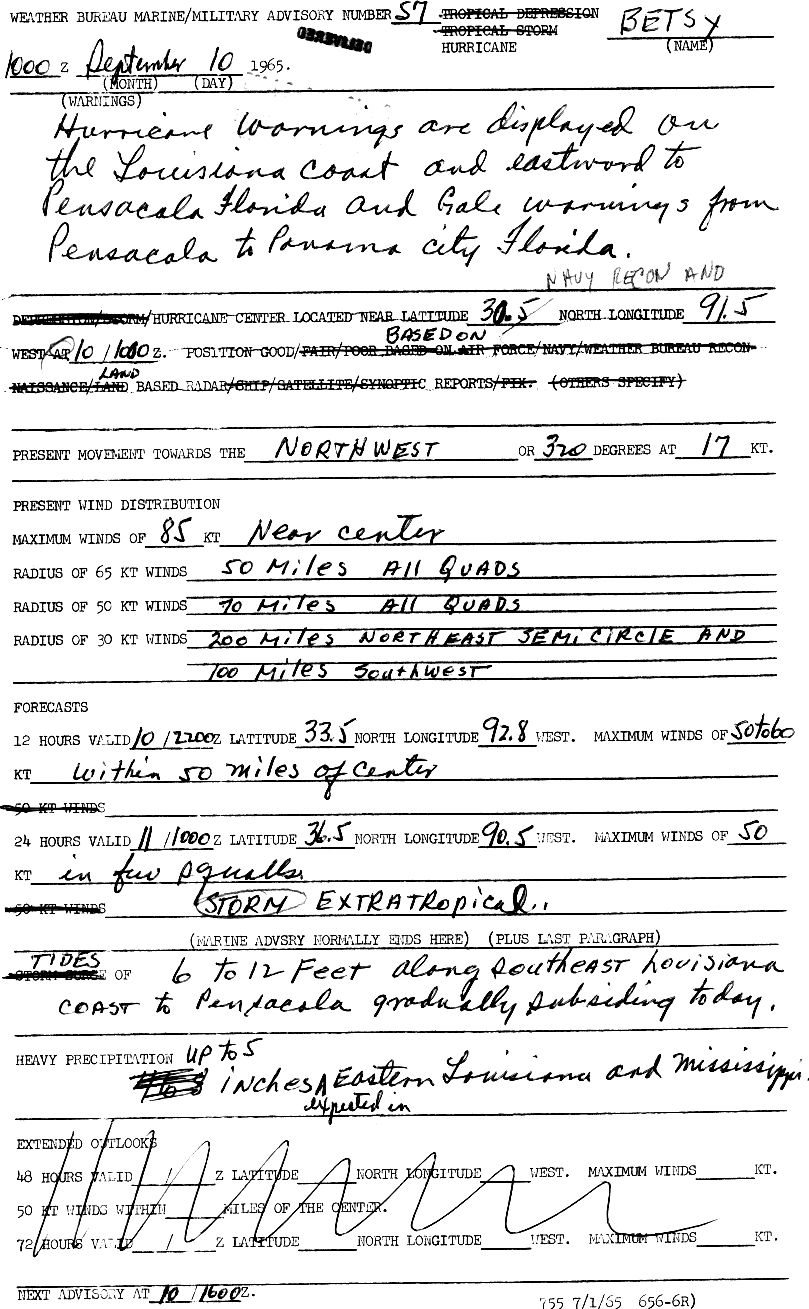 WEATHER BUREAU MARINE/MILITARY ADVISORY NUMBER 57 TROPICAL DEPRESSION BETSY
TROPICAL STORM
HURRICANE (NAME)
1000 Z September 10 1965.
(MONTH) (DAY)
(WARNINGS)
Hurricane warnings are displayed on
the Louisiana coast and eastward to
Pensacola Florida and Gale warnings from
Pensacola to Panama city Florida.
NAVY RECON AND
DEPRESSION/STORM/HURRICANE CENTER LOCATED NEAR LATITUDE 30.5 NORTH LONGITUDE 91.5
BASED ON
WEST AT 10 /1000 Z. POSITION GOOD/FAIR/POOR BASED ON AIR FORCE/NAVY/WEATHER BUREAU RECON-
LAND
NAISSANCE/LAND BASED RADAR/SHIP/SATELLITE/SYNOPTIC REPORTS/FIX. (OTHERS SPECIFY)
PRESENT MOVEMENT TOWARDS THE NORTHWEST OR 320 DEGREES AT 17 KT.
PRESENT WIND DISTRIBUTION
MAXIMUM WINDS OF 85 KT Near center
RADIUS OF 65 KT WINDS 50 Miles All QUADS
RADIUS OF 50 KT WINDS 70 Miles All QUADS
RADIUS OF 30 KT WINDS 200 Miles NORTHEAST SEMiCIRClE AND
100 Miles SouthWEST
FORECASTS
12 HOURS VALID 10 /2200Z LATITUDE 33.5 NORTH LONGITUDE 92.8 WEST. MAXIMUM WINDS OF 50 to 60
KT within 50 miles of center
50 KT WINDS
24 HOURS VALID 11 /1000 Z LATITUDE 36.5 NORTH LONGITUDE 90.5 WEST. MAXIMUM WINDS OF 50
KT in few squalls
50 KT WINDS STORM EXTRATROpical..
(MARINE ADVSRY NORMALLY ENDS HERE) (PLUS LAST PARAGRAPH)
TIDES
STORM SURGE OF 6 to 12 Feet along southEAST Louisiana
COAST to Pensacola gradually subsiding today.
HEAVY PRECIPITATION UP to 5
inches Eastern Louisiana and Mississippi.
expected in
EXTENDED OUTLOOKS
48 HOURS VALID / Z LATITUDE NORTH LONGITUDE WEST. MAXIMUM WINDS KT.
50 KT WINDS WITHIN MILES OF THE CENTER.
72 HOURS VALID / Z LATITUDE NORTH LONGITUDE WEST. MAXIMUM WINDS KT.
NEXT ADVISORY AT 10 /1600 Z.
755 7/1/65 656-6R)